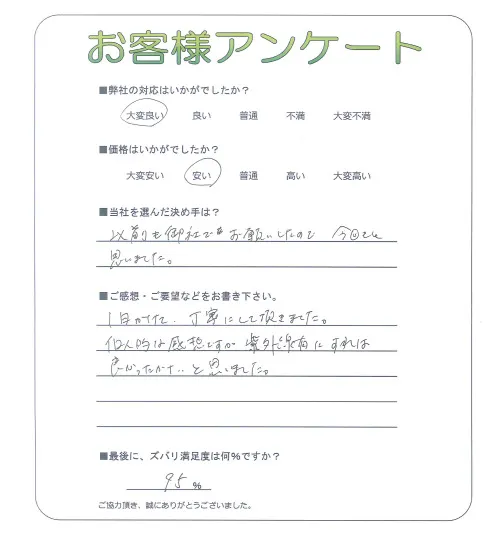 お客様アンケート
■弊社の対応はいかがでしたか?
大変良い 良い 普通 不満 大変不満
■価格はいかがでしたか?
大変安い 安い 普通 高い 大変高い
■当社を選んだ決め手は?
以前も御社でお願いしたので 今回も
思いました。
■ご感想・ご要望などをお書き下さい。
1日かけて、丁寧にして頂きました。
個人的な感想ですが 紫外線有にすれば
良かったかナ・・と思いました。
■最後に、ズバリ満足度は何%ですか?
95 %
ご協力頂き、誠にありがとうございました。